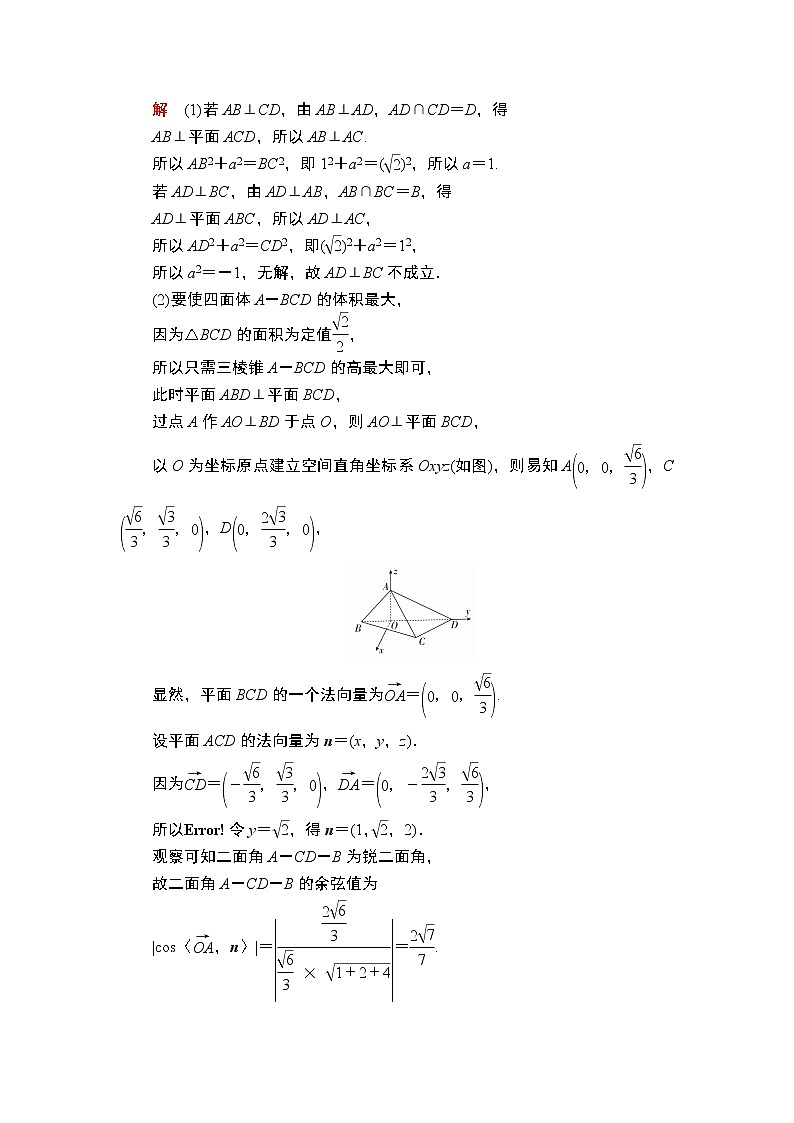 解 (1)若 AB⊥CD，由 AB⊥AD，AD∩CD＝D，得
AB⊥平面 ACD，所以 AB⊥AC.
所以 AB²＋a²＝BC²，即 1²＋a²＝(√2)²，所以 a＝1.
若 AD⊥BC，由 AD⊥AB，AB∩BC＝B，得
AD⊥平面 ABC，所以 AD⊥AC，
所以 AD²＋a²＝CD²，即(√2)²＋a²＝1²，
所以 a²＝－1，无解，故 AD⊥BC 不成立．
(2)要使四面体 A－BCD 的体积最大，
因为△BCD 的面积为定值√2/2，
所以只需三棱锥 A－BCD 的高最大即可，
此时平面 ABD⊥平面 BCD，
过点 A 作 AO⊥BD 于点 O，则 AO⊥平面 BCD，
以 O 为坐标原点建立空间直角坐标系 Oxyz(如图)，则易知 A(0，0，√6/3)，C
(√6/3，√3/3，0)，D(0，2√3/3，0)，
z
A
y
B
O
D
C
x
显然，平面 BCD 的一个法向量为OA→＝(0，0，√6/3).
设平面 ACD 的法向量为 n＝(x，y，z)．
因为CD→＝(－√6/3，√3/3，0)，DA→＝(0，－2√3/3，√6/3)，
所以Error! 令 y＝√2，得 n＝(1，√2，2)．
观察可知二面角 A－CD－B 为锐二面角，
故二面角 A－CD－B 的余弦值为
|cos〈OA→，n〉|＝|(2√6/3)/(√6/3 × √1＋2＋4)|＝2√7/7.